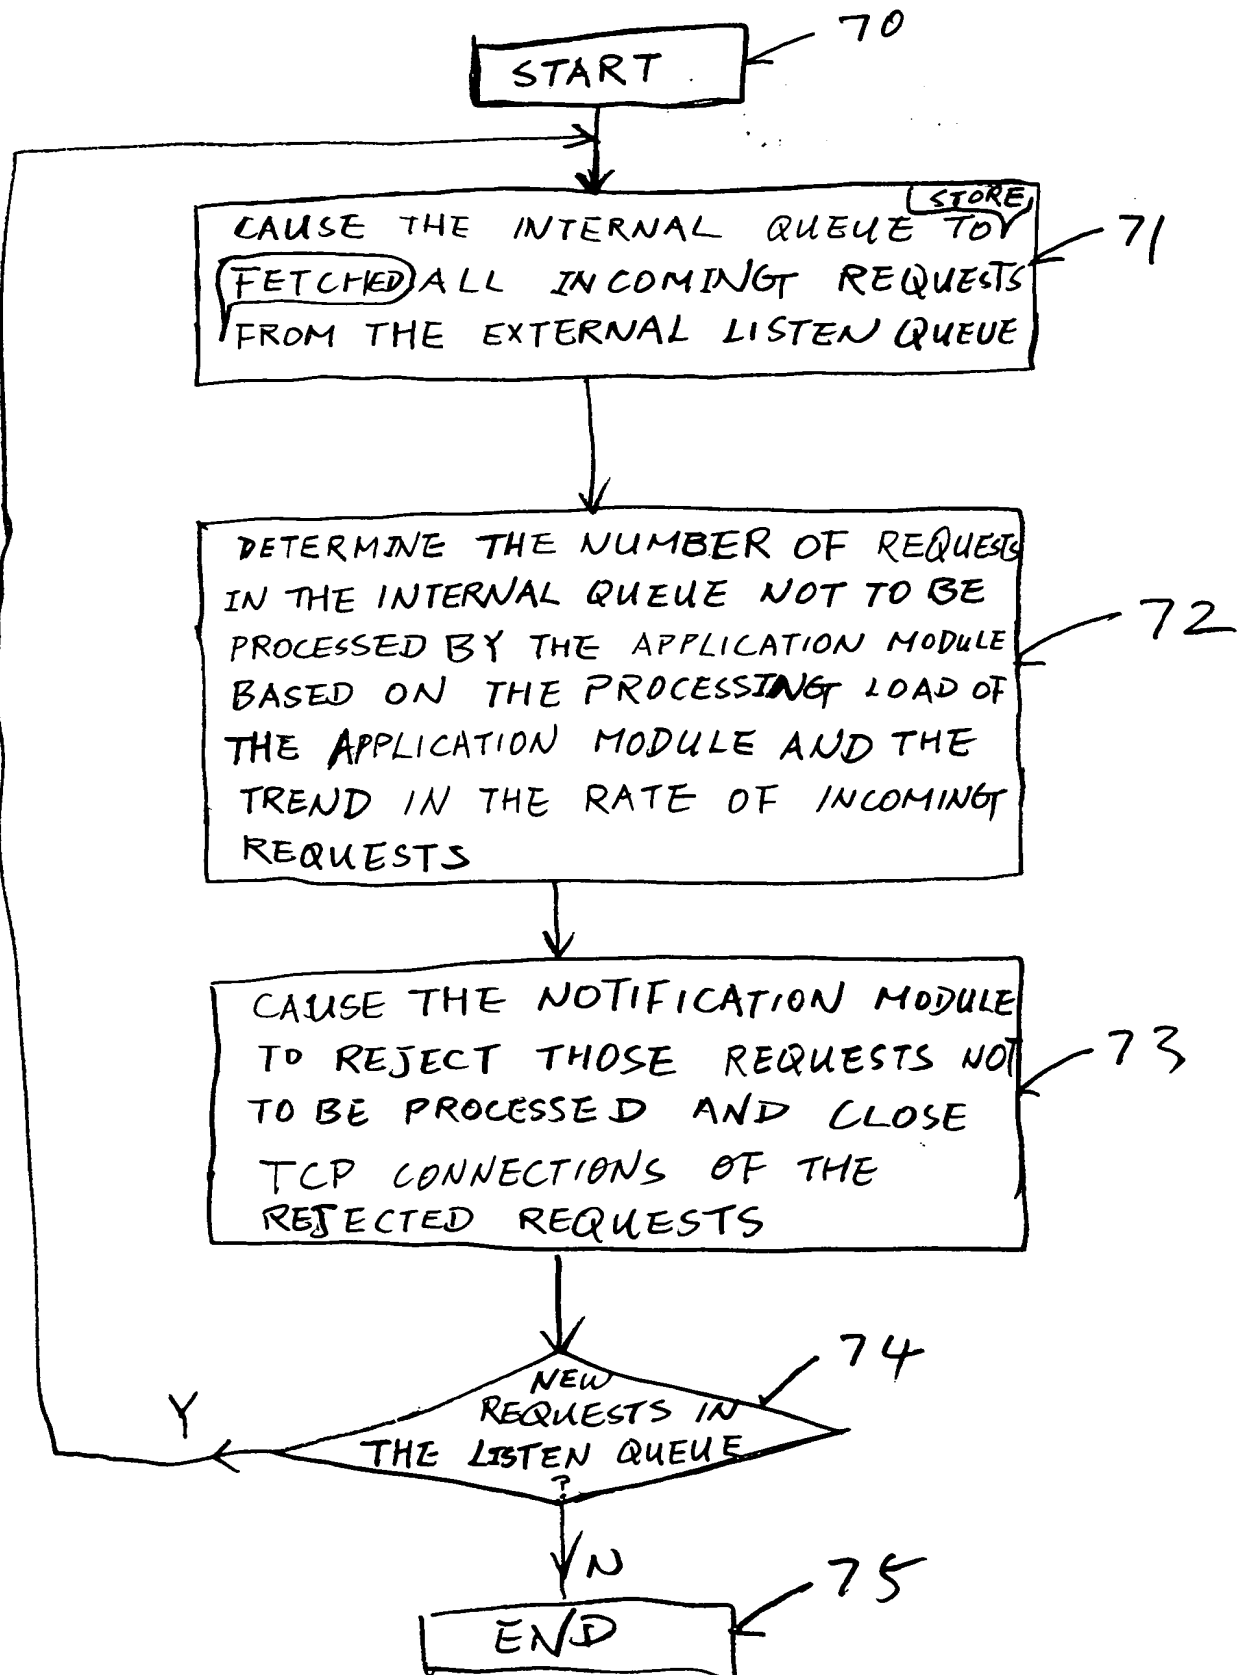 70
START
STORE
CAUSE THE INTERNAL QUEUE TO
71
FETCHED ALL INCOMING REQUESTS
FROM THE EXTERNAL LISTEN QUEUE
DETERMINE THE NUMBER OF REQUESTS
IN THE INTERNAL QUEUE NOT TO BE
72
PROCESSED BY THE APPLICATION MODULE
BASED ON THE PROCESSING LOAD OF
THE APPLICATION MODULE AND THE
TREND IN THE RATE OF INCOMING
REQUESTS
CAUSE THE NOTIFICATION MODULE
TO REJECT THOSE REQUESTS NOT
73
TO BE PROCESSED AND CLOSE
TCP CONNECTIONS OF THE
REJECTED REQUESTS
74
NEW
REQUESTS IN
THE LISTEN QUEUE
?
Y
N
75
END